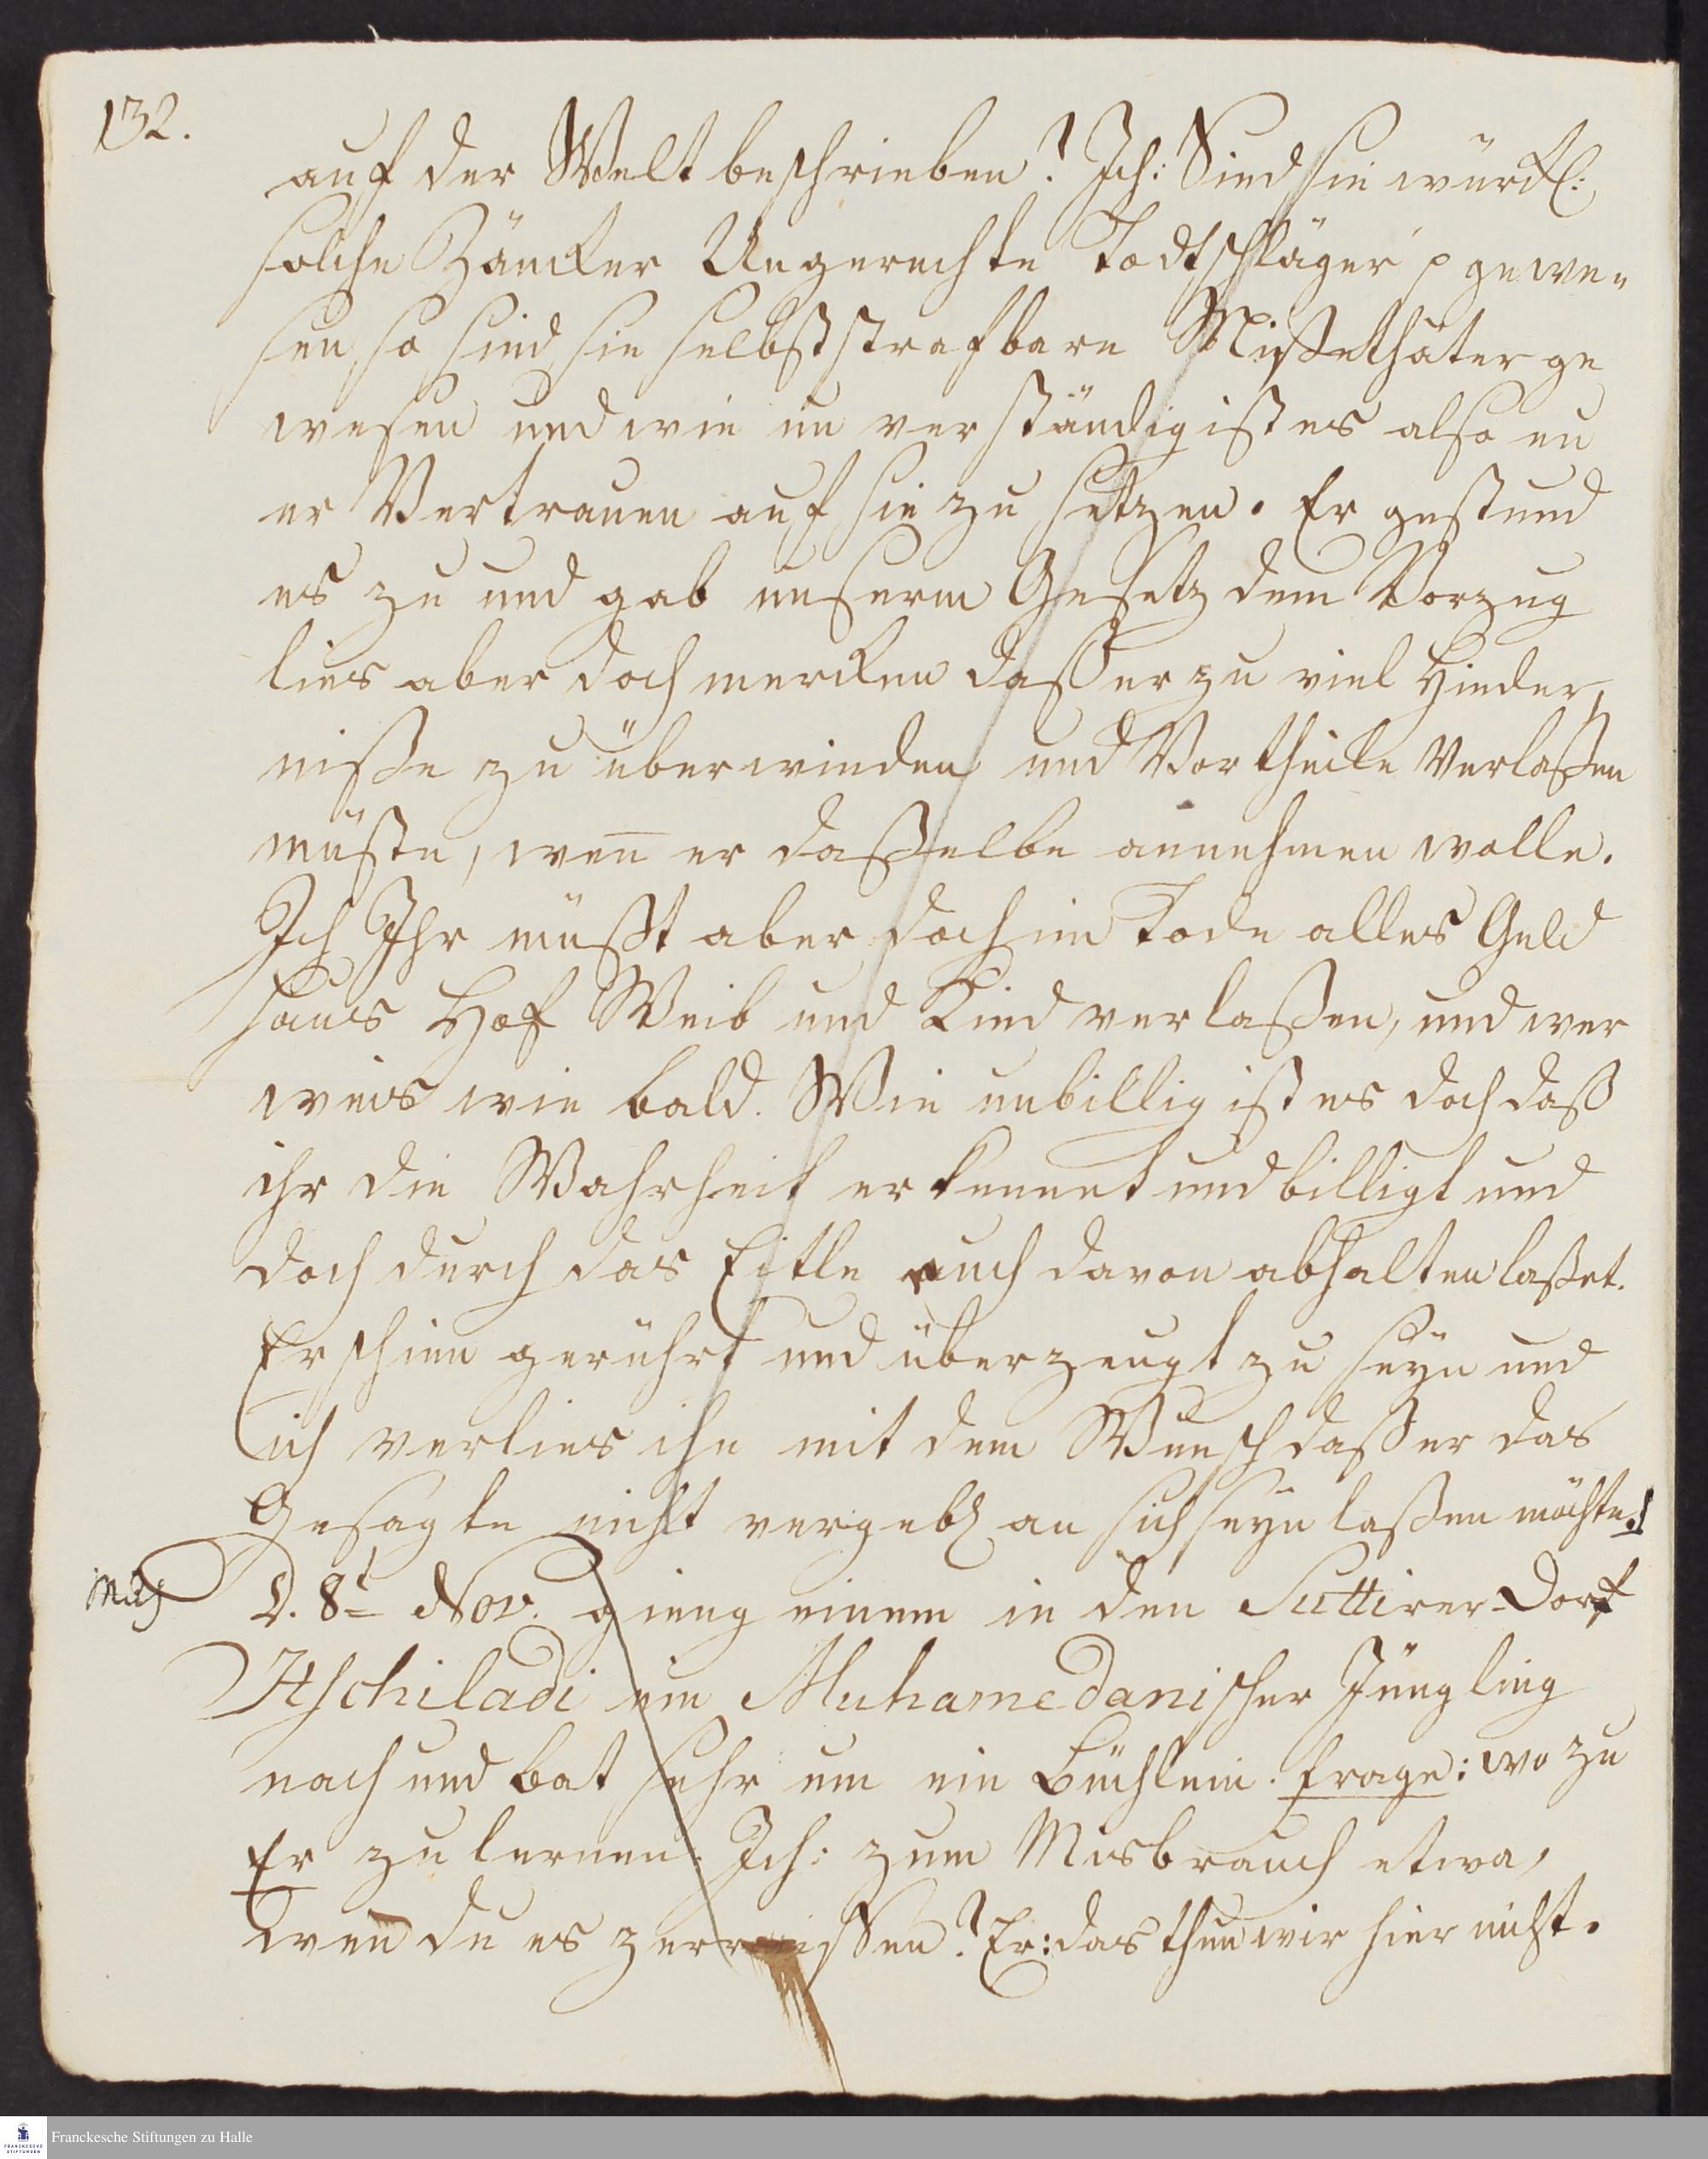 132.
auf der Welt beschrieben? Ich: Sind sie würkl:
solche Zäncker Ungerechte Todtschläger p gewe„
sen, so sind sie selbst strafbare Mißethäter ge
wesen und wie un verständig ist es also eu
er Vertrauen auf sie zu setzen. Er gestund
es zu und gab unserm Gesetz dem Vorzug
lies aber doch mercken daß er zu viel Hinder,
niße zu überwinden und Vortheile Verlaßen
müste, weñ er daßelbe annehmen wolle.
Ich Ihr müßt aber doch im Tode alles Geld
Haus Hof Weib und Kind verlaßen, und wer
weis wie bald. Wie unbillig ist es doch daß
ihr die Wahrheit erkennet und billigt und
doch durch das Eitle euch davon abhalten laßet.
Er schien gerührt und überzeugt zu seyn und
ich verlies ihn mit dem Wunsch daß er das
Gesagte nicht vergebl an sich seyn laßen möchte.!
D. 8t Nov. gieng einem in den Suttirer-Dorf
Itschiladi ein Muhamedanischer Jüngling
nach und bat sehr um ein Büchlein. Frage: wo zu
Er zu lernen. Ich: zum Misbrauch etwa,
weñ du es zerreissen? Er: das thun wir hier nicht.
Franckesche Stiftungen zu Halle
FRANCKESCHE
STIFTUNGEN